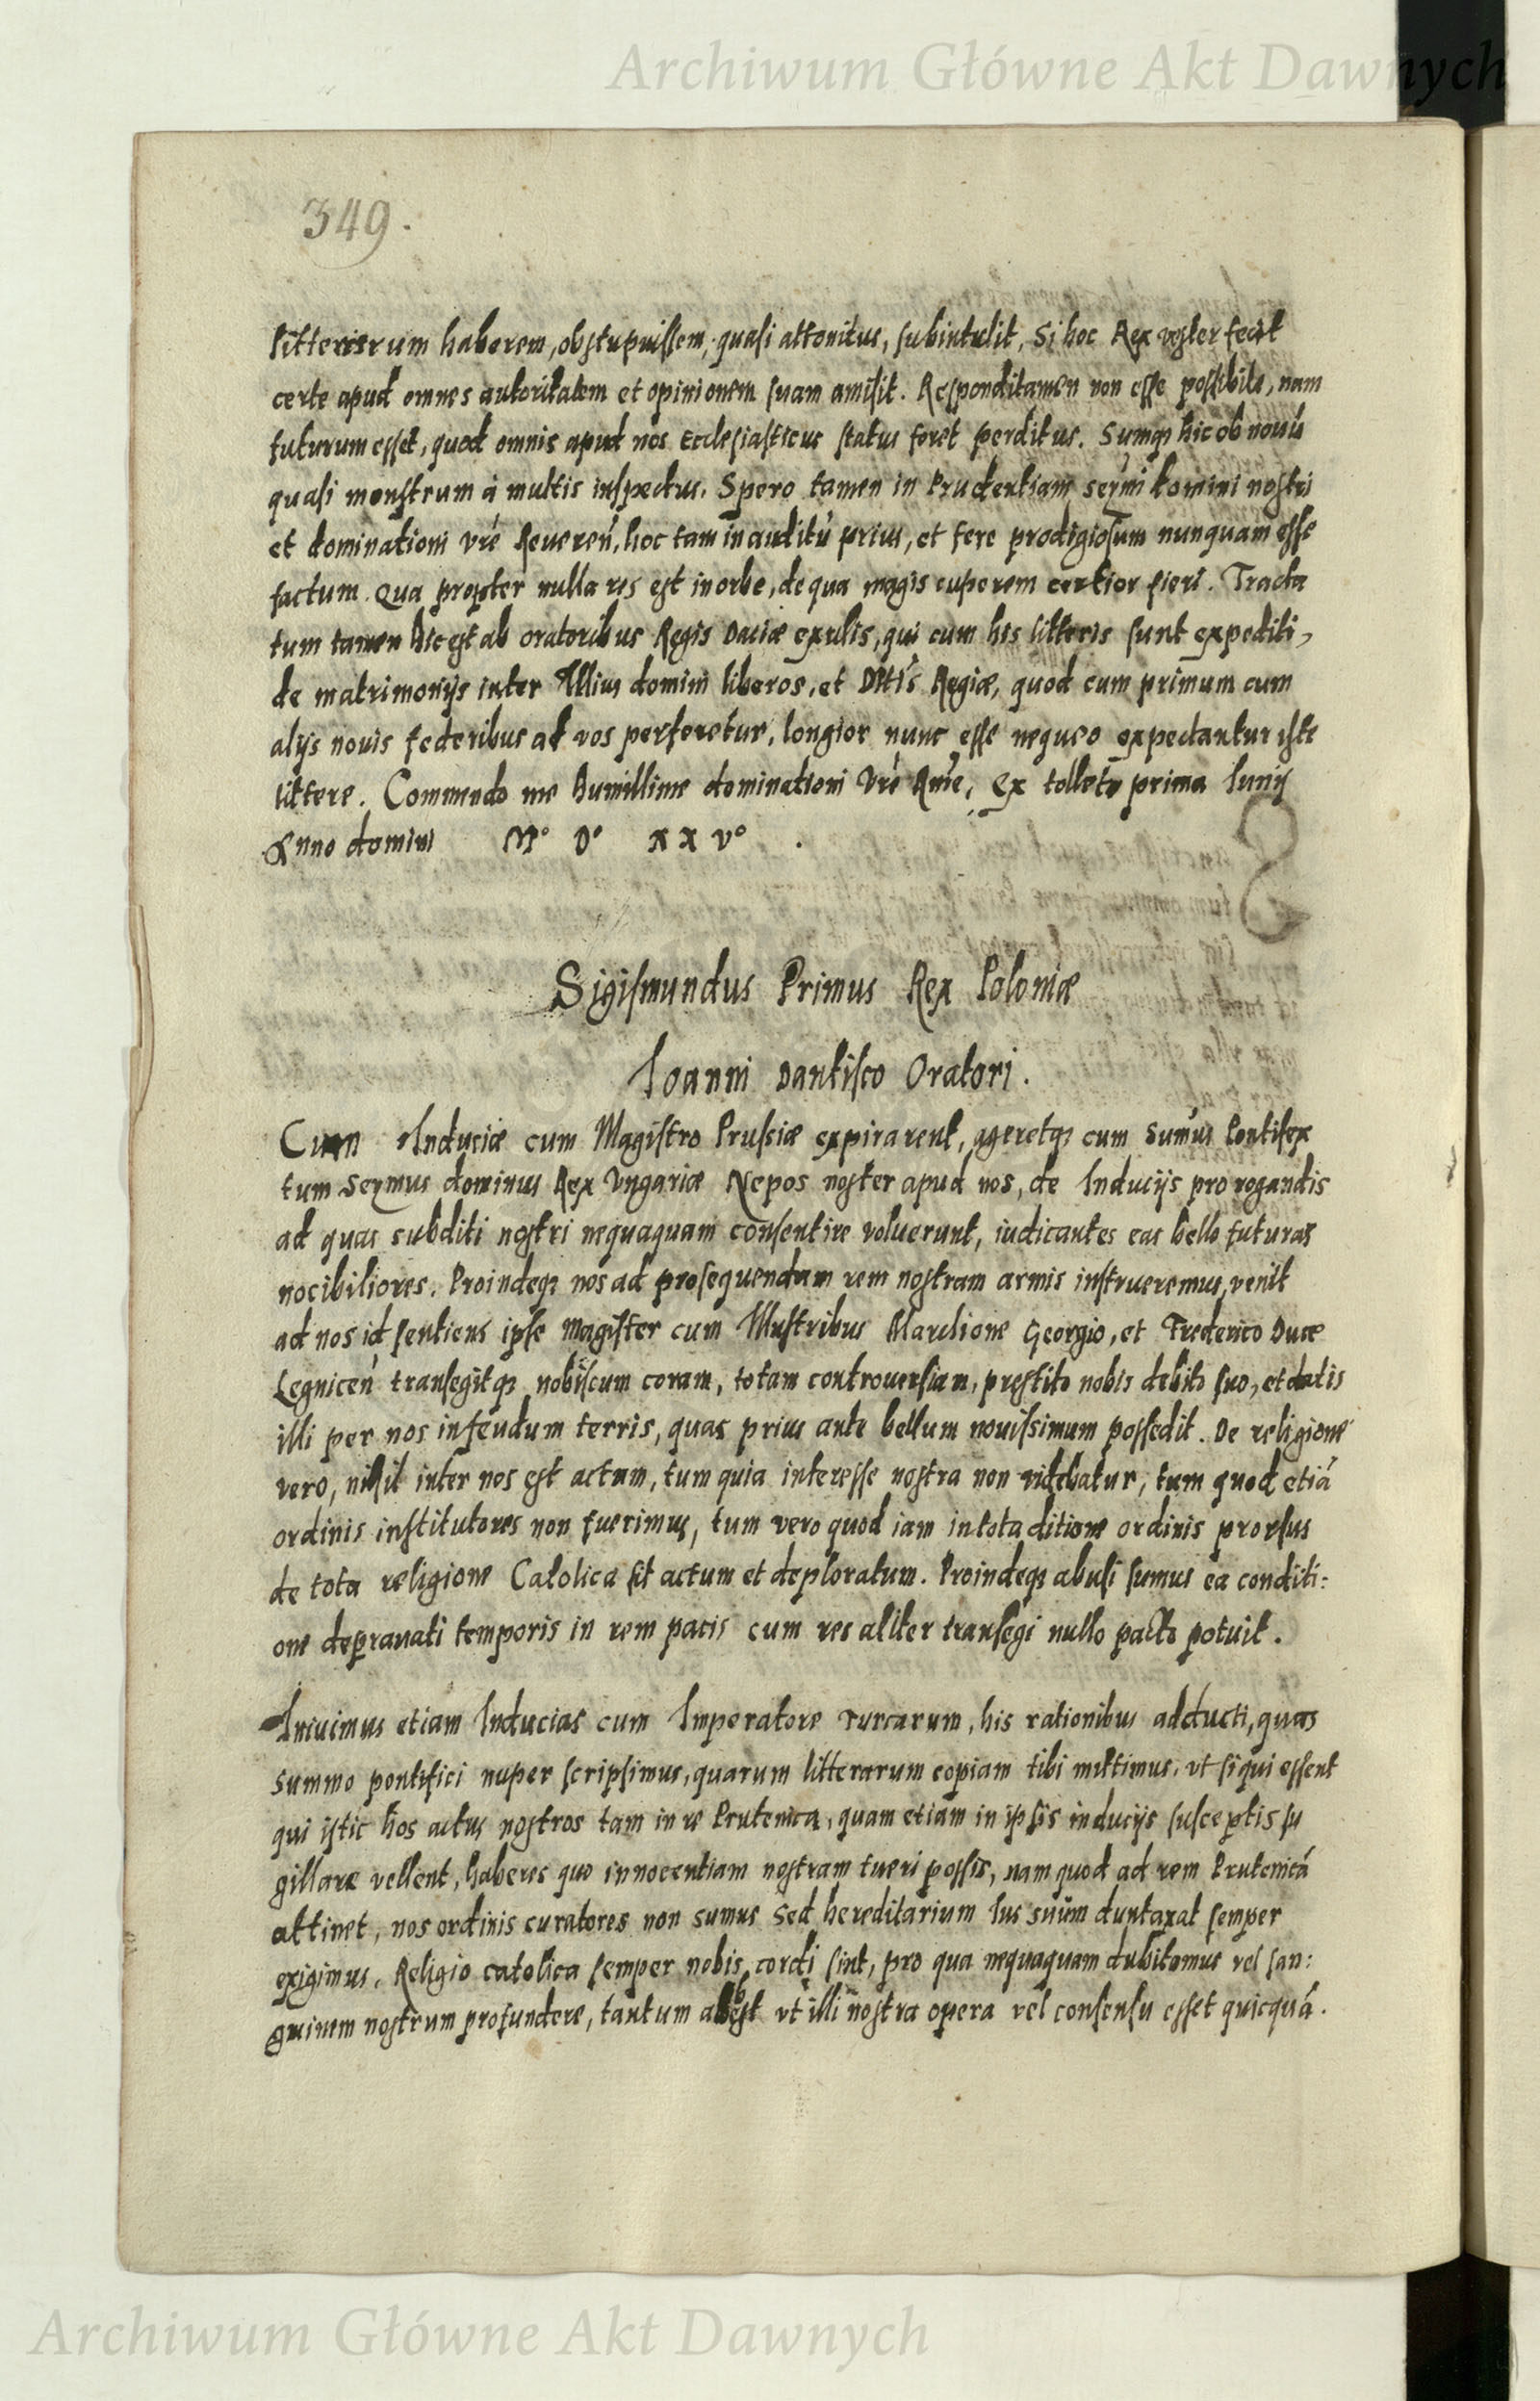 Archiwum Główne Akt Dawnych
349.
litterarum haberem, obstupuissem, quasi attonitus, subintulit, Si hoc Rex vester fecit
certe apud omnes autoritatem et opinionem suam amisit. Respondi tamen non esse possibile, nam
futurum esset, quod omnis apud nos Ecclesiasticus status foret perditus. Sumq; hic ob nouú
quasi monstrum à multis inspectus. Spero tamen in Prudentiam sermi domini nostri
et dominationi vré Reuereń, hoc tam inauditú prius, et fere prodigiosum nunquam esse
factum. Qua propter nulla res est in orbe, de qua magis cuperem certior fieri. Tracta
tum tamen hic est ab oratoribus Regis Daciæ exulis, qui cum his litteris sunt expediti,
de matrimonijs inter Illius domini liberos, et Dttis Regiæ, quod cum primum cum
alijs nouis federibus ad vos perferetur, longior nunc esse nequeo expectantur iste
littere. Commendo me humillime dominationi Vré Rme, Ex tolleto prima Iunij
Anno domini M° D° x x v° .
Sigismundus Primus Rex Poloniæ
Ioanni Dantisco Oratori.
Cum Induciæ cum Magistro Prussiæ expirarent, ageretq; cum Sumús Pontifex
tum Seymus dominus Rex Vngariæ Nepos noster apud nos, de Inducijs prorogandis
ad quas subditi nostri nequaquam consentire voluerunt, iudicantes eas bello futuras
nocibiliores. Proindeq; nos ad prosequendam rem nostram armis instrueremus, venit
ad nos id sentiens ipse Magister cum Illustribus Marchione Georgio, et Frederico Duce
Legniceń transegitq; nobiscum coram, totam controuersiam, prestito nobis debito suo, et datis
illi per nos in feudum terris, quas prius ante bellum nouissimum possedit. De religione
vero, nihil inter nos est actum, tum quia interesse nostra non videbatur, tum quod etiá
ordinis institutores non fuerimus, tum vero quod iam in tota ditione ordinis prorsus
de tota religione Catolica sit actum et deploratum. Proindeq; abusi sumus ea conditi:
one deprauati temporis in rem pacis cum res aliter transegi nullo pacto potuit.
Iniuimus etiam Inducias cum Imperatore Turcarum, his rationibus adducti, quas
summo pontifici nuper scripsimus, quarum litterarum copiam tibi mittimus. vt si qui essent
qui istic hos actus nostros tam in re Prutenica, quam etiam in ipsis inducijs susceptis su
gillare vellent, haberes quo innocentiam nostram tueri possis, nam quod ad rem Prutenicá
attinet, nos ordinis curatores non sumus sed hereditarium Ius suum duntaxat semper
exigimus. Religio catolica semper nobis cordi sint, pro qua nequaquam dubitamus vel san:
guinem nostrum profundere, tantum abest vt illi nostra opera vel consensu esset quicquá.
Archiwum Główne Akt Dawnych